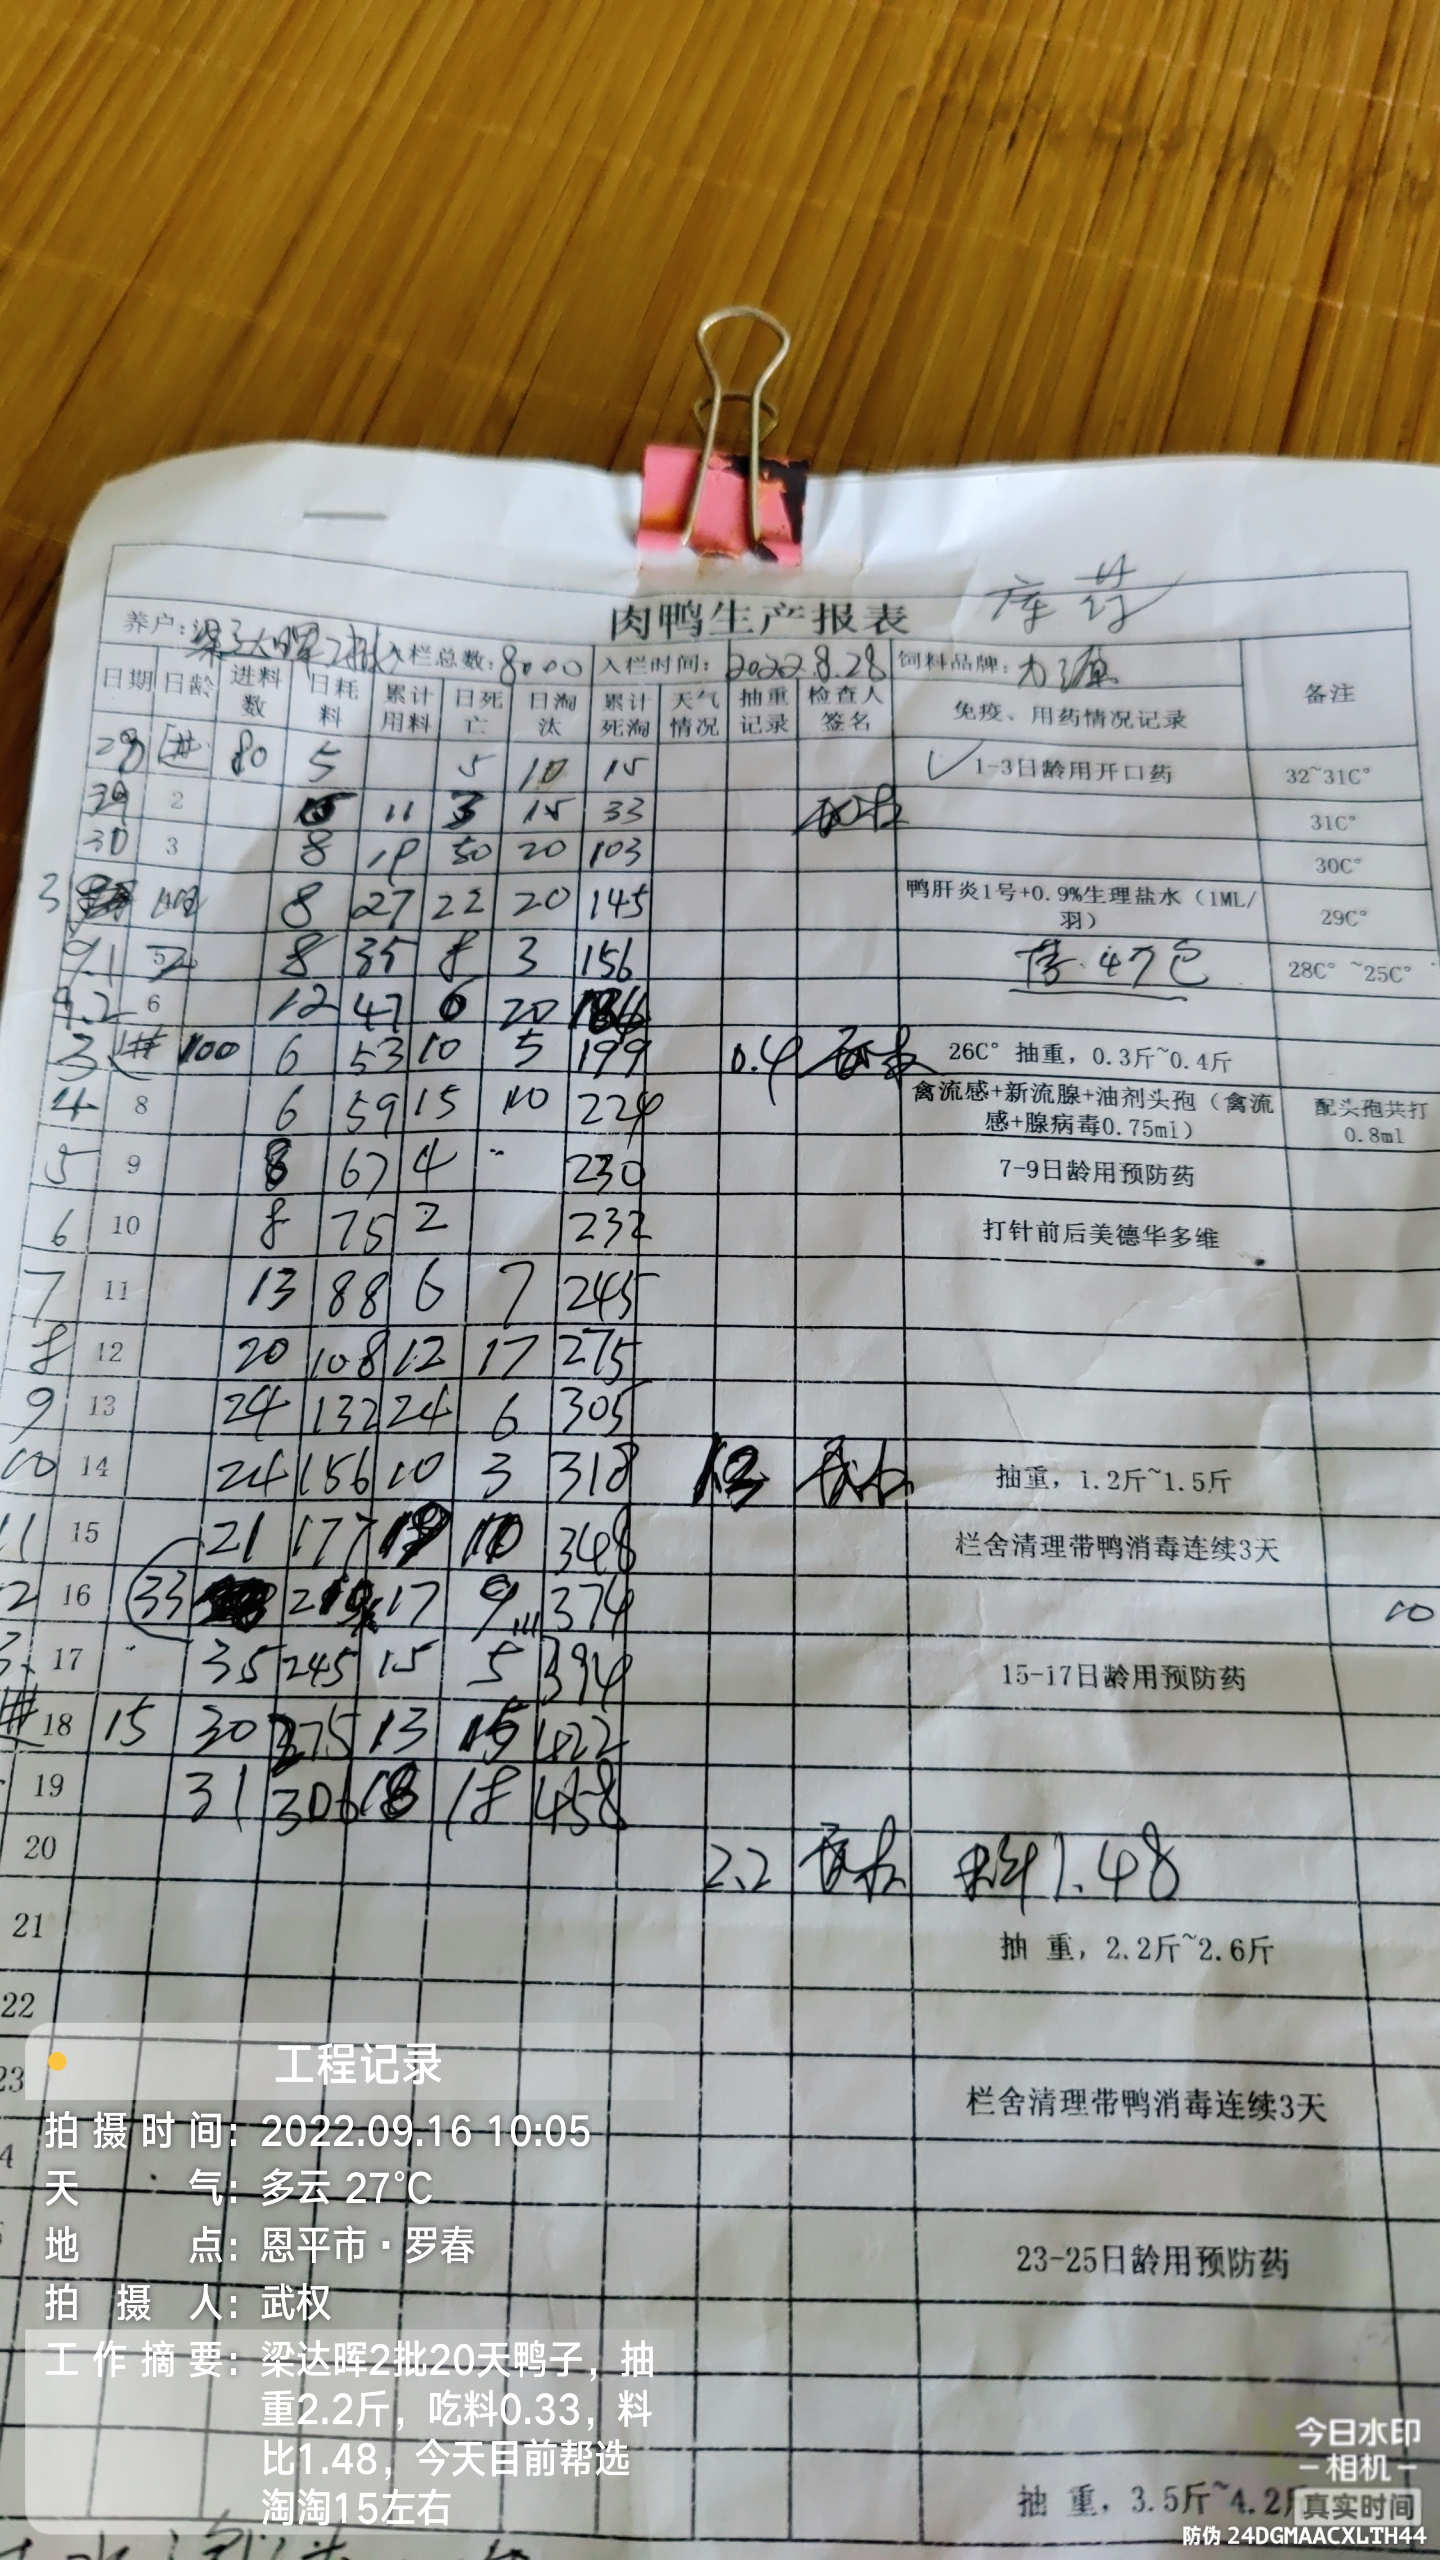 库药
肉鸭生产报表
养户: 梁达晖2批 入栏总数: 8000 入栏时间: 2022.8.28 饲料品牌: 力源
日期 日龄 进料数 日耗料 累计用料 日死亡 日淘汰 累计死淘 天气情况 抽重记录 检查人签名 免疫、用药情况记录 备注
28 1# 80 5 5 10 15 ✓1-3日龄用开口药 32~31C°
29 2 6 11 3 15 33 31C°
30 3 8 19 50 20 103 30C°
8 27 22 20 145 鸭肝炎1号+0.9%生理盐水（1ML/羽） 29C°
9.1 5 8 35 8 3 156 47包 28C°~25C°
9.2 6 12 47 6 20
3 1# 100 6 53 10 5 199 0.4 26C° 抽重，0.3斤~0.4斤
4 8 6 59 15 10 224 禽流感+新流腺+油剂头孢（禽流感+腺病毒0.75ml） 配头孢共打0.8ml
5 9 8 67 4 230 7-9日龄用预防药
6 10 8 75 2 232 打针前后美德华多维
7 11 13 88 6 7 245
8 12 20 108 12 17 275
9 13 24 132 24 6 305
10 14 24 156 10 3 318 抽重，1.2斤~1.5斤
11 15 21 177 10 348 栏舍清理带鸭消毒连续3天
2 16 33 17 9 374 10
3 17 35 245 15 5 394 15-17日龄用预防药
# 18 15 30 275 13 15 422
19 31 306 18 18 458
20 2.2 料1.48
21 抽 重，2.2斤~2.6斤
22
23 栏舍清理带鸭消毒连续3天
4
23-25日龄用预防药
抽 重，3.5斤~4.2斤
工程记录
拍摄时间: 2022.09.16 10:05
天气: 多云 27℃
地点: 恩平市·罗春
拍摄人: 武权
工作摘要: 梁达晖2批20天鸭子，抽
重2.2斤，吃料0.33，料
比1.48，今天目前帮选
淘淘15左右
今日水印
相机
真实时间
防伪 24DGMAACXLTH44